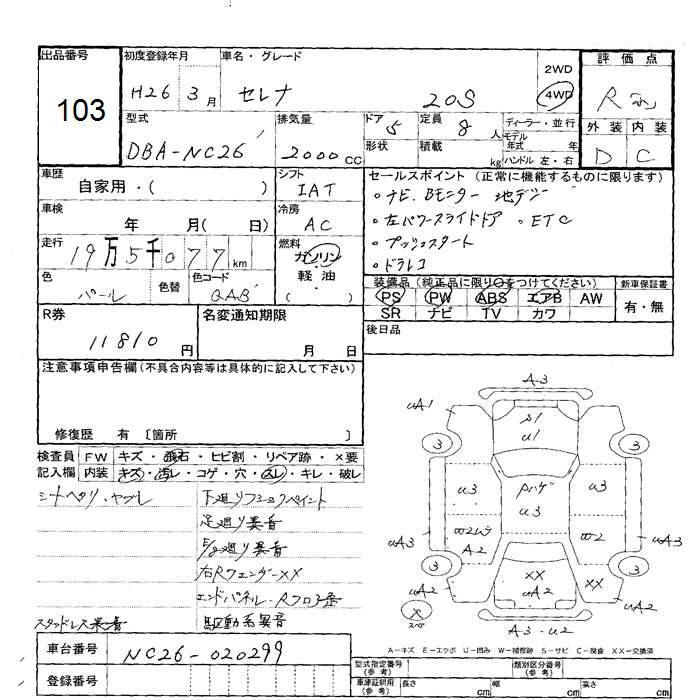 出品番号
103
初度登録年月
H26 3月
車名・グレード
セレナ 20S
2WD
4WD
評価点
R
外装 内装
D C
型式
DBA-NC26
排気量
2000cc
ドア 5
形状
定員 8 人
積載 kg
ディーラー・並行
モデル年式 年
ハンドル 左・右
車歴
自家用・( )
シフト
IAT
セールスポイント (正常に機能するものに限ります)
・ナビ.Bモニター 地デジ
・左パワースライドドア ・ETC
・プッシュスタート
・ドラレコ
車検
年 月( 日)
冷房
AC
走行
19万5千077km
燃料
ガソリン
軽・油
( )
色
パール
色替
色コード
QAB
装備品 (純正品に限り○をつけてください)
PS PW ABS エアB AW
SR ナビ TV カワ
新車保証書
有・無
R券
11810円
名変通知期限
月 日
後日品
注意事項申告欄(不具合内容等は具体的に記入して下さい)
修復歴 有 〔箇所 〕
検査員記入欄
FW キズ・飛石・ヒビ割・リペア跡・×要
内装 キズ・汚レ・コゲ・穴・スレ・キレ・破レ
シートヘタリ・ヤブレ
下廻りフショクペイント
足廻り異音
E/g廻り異音
右Rフェンダーxx
エンドパネル・Rフロア
スタッドレス
駆動系異音
A-3
uA1
P1
u1
3
3
u3
Pハゲ
u3
u3
uA3
w2w
A2
w2
uA3
3
3
uA2
xx
uA2
xx
uA2
×
スペア
A-3-u2
A-キズ E-エクボ U-凹み W-補修跡 S-サビ C-腐食 XX-交換済
車台番号
NC26-020299
登録番号
型式指定番号
(参考)
類別区分番号
(参考)
車庫証明用
(参考)
長さ cm
幅 cm
高さ cm